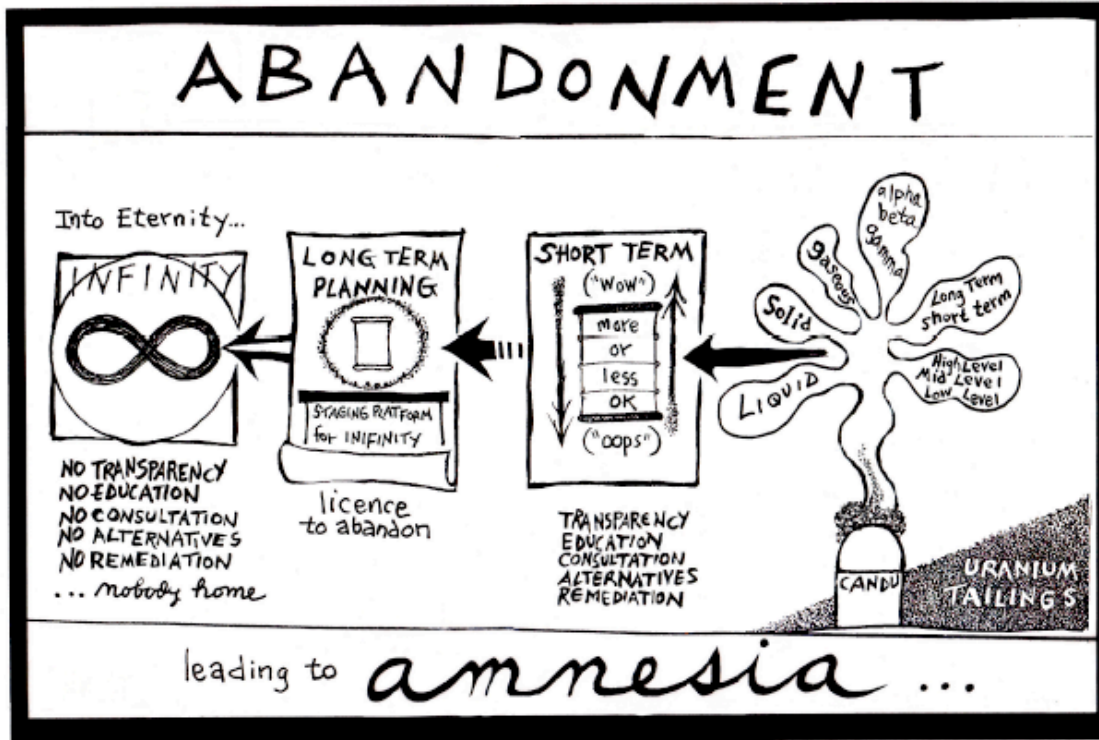 ABANDONMENT
Into Eternity...
INFINITY
NO TRANSPARENCY
NO EDUCATION
NO CONSULTATION
NO ALTERNATIVES
NO REMEDIATION
... nobody home
LONG TERM
PLANNING
STAGING PLATFORM
for INIFINITY
licence
to abandon
SHORT TERM
("WOW")
more
or
less
OK
("oops")
TRANSPARENCY
EDUCATION
CONSULTATION
ALTERNATIVES
REMEDIATION
LIQUID
Solid
gaseous
alpha
beta
gamma
Long Term
short term
High Level
Mid Level
Low Level
CANDU
URANIUM
TAILINGS
leading to amnesia ...